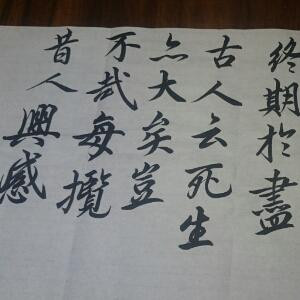 終期於盡
古人云死生
亦大矣豈
不哉每攬
昔人興感